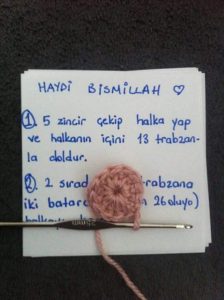 HAYDİ BİSMİLLAH ♡
1. 5 zincir çekip halka yap
ve halkanın içini 13 trabzan-
la doldur.
2. 2. sırad trabzana
iki batar n 26 oluyo)